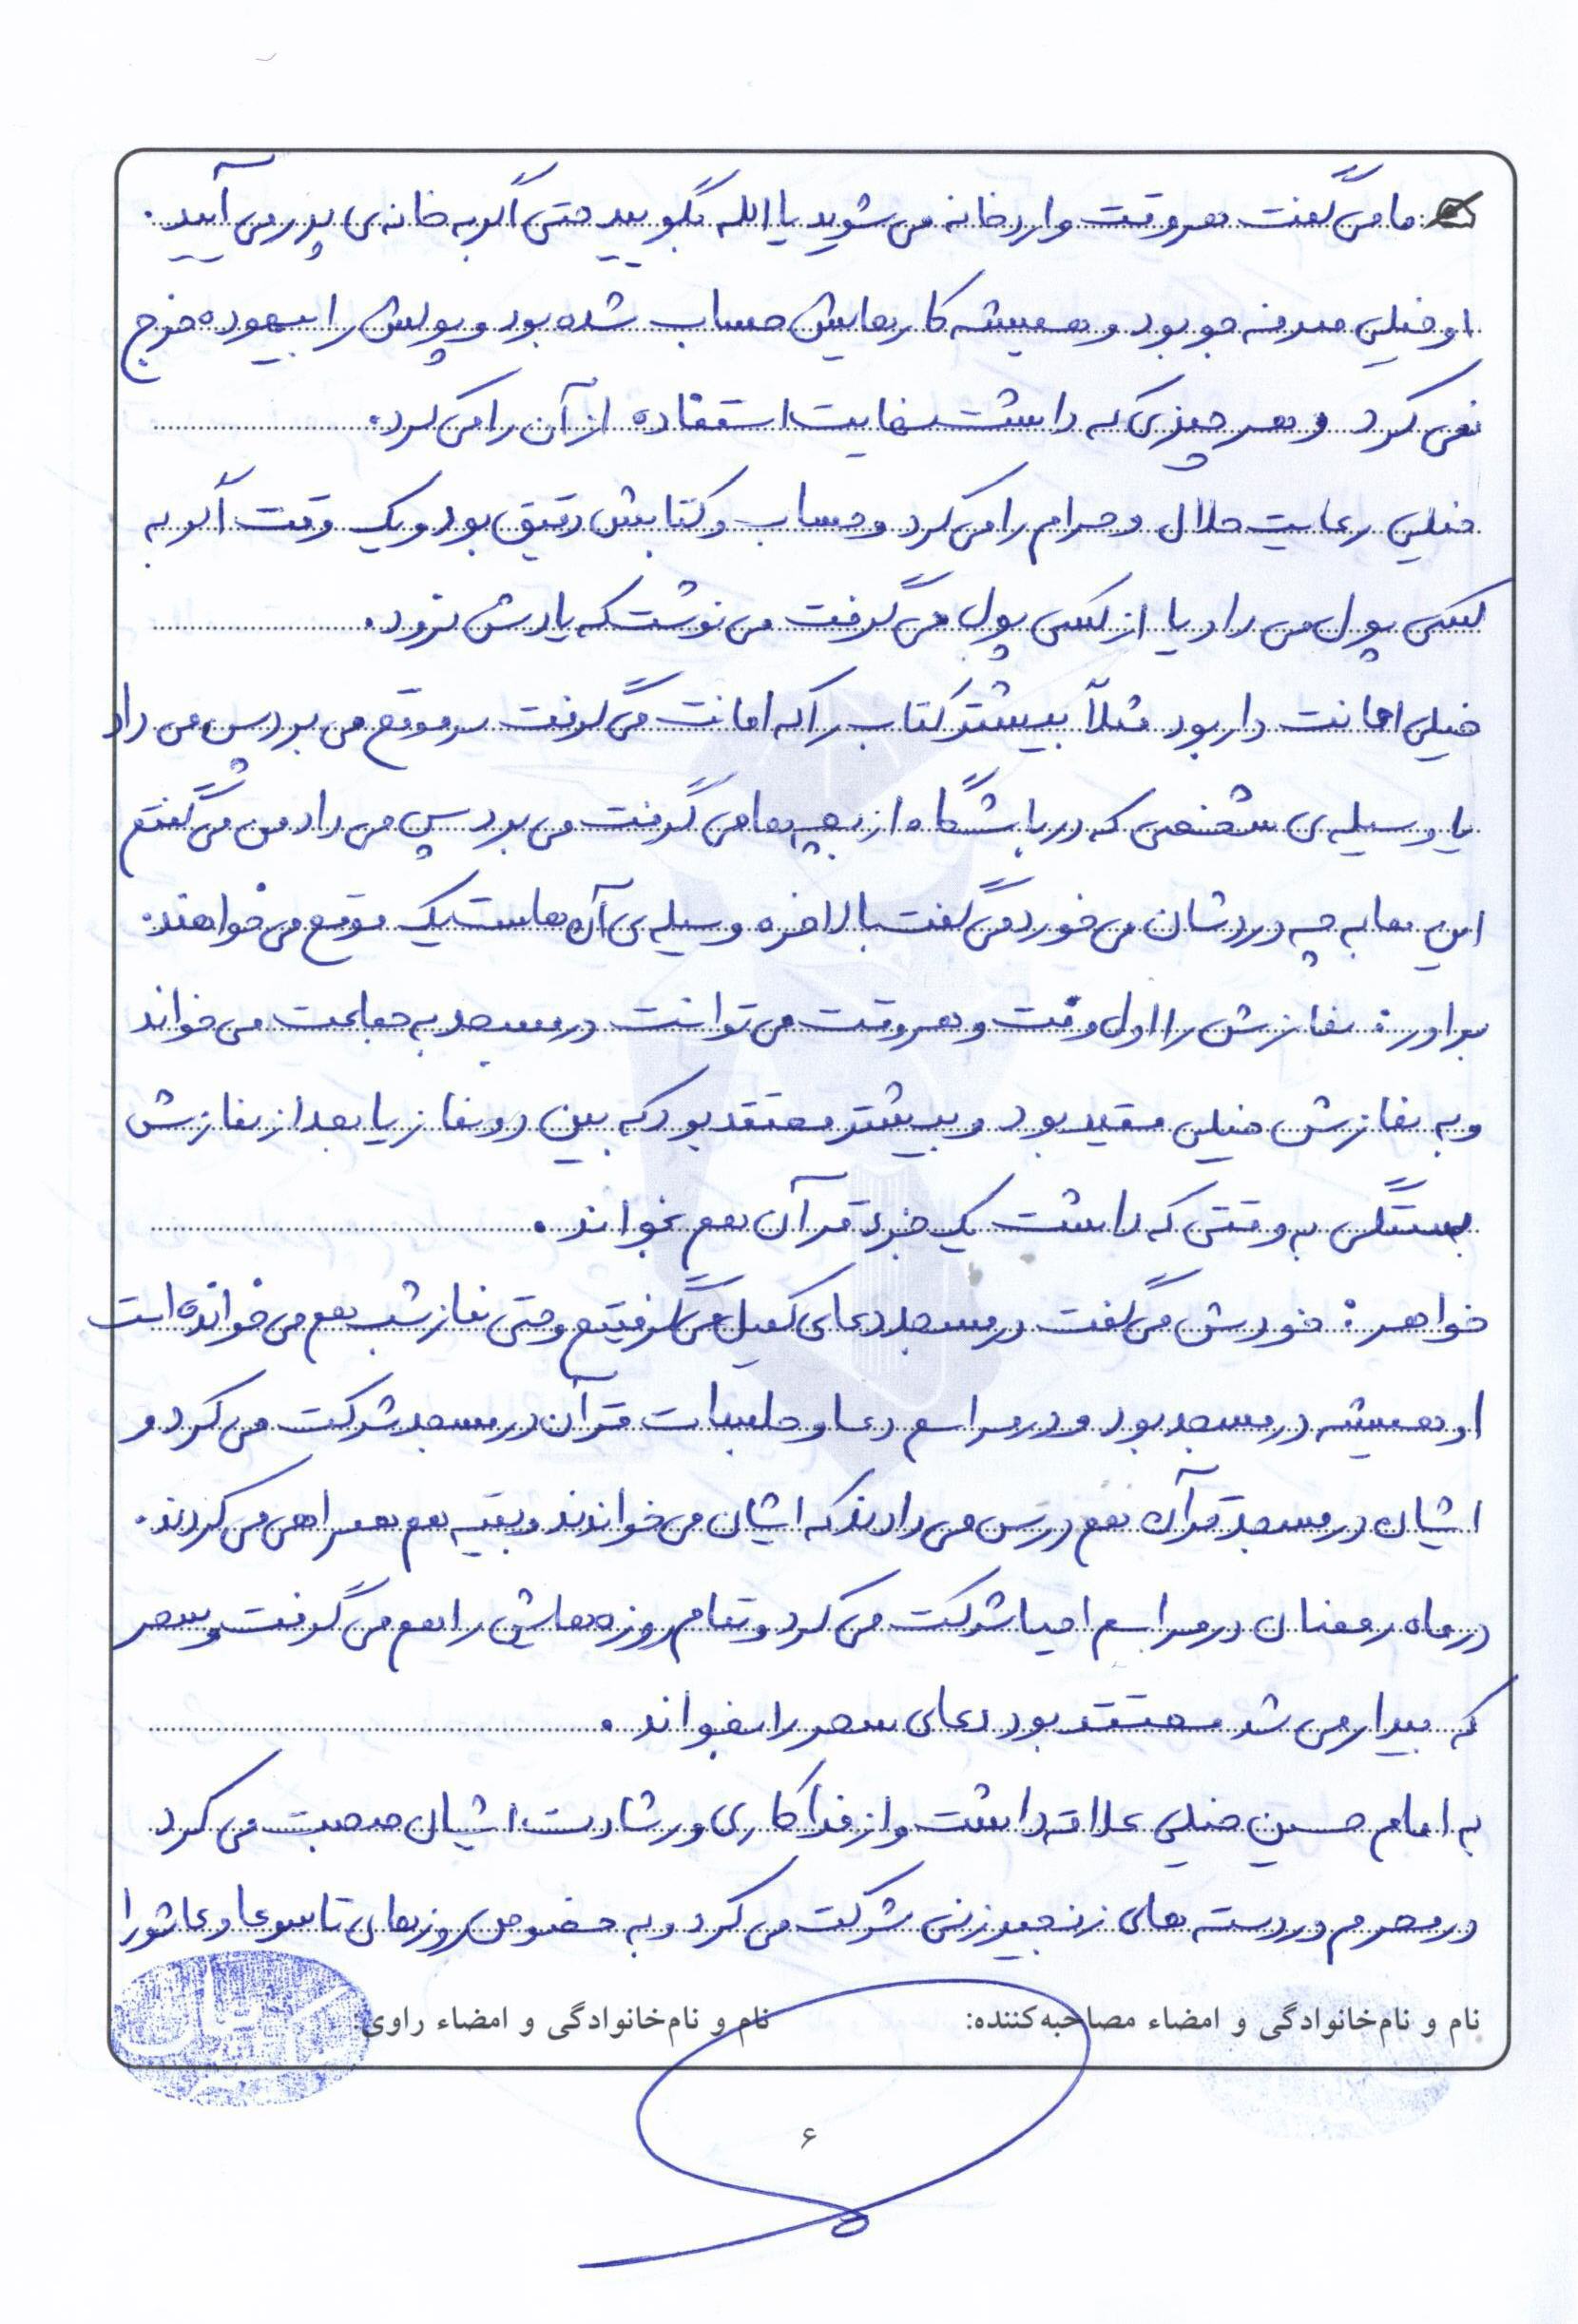 ما می گفت هر وقت وارد خانه می شوید یا الله بگویید حتی اگر به خانه ی پدر می آیید.
او خیلی صرفه جو بود و همیشه کارهایش حساب شده بود و پولش را بیهوده خرج
نمی کرد و هر چیزی که داشت نهایت استفاده از آن را می کرد.
خیلی رعایت حلال و حرام را می کرد و حساب و کتابش دقیق بود و یک وقت اگر به
کسی پول می داد یا از کسی پول می گرفت می نوشت که یادش نرود.
خیلی امانت دار بود مثلاً بیشتر کتاب را که امانت می گرفت سر موقع می برد پس می داد
یا وسیله ی شخصی که در باشگاه از بچه ها می گرفت می برد پس می داد من می گفتم
این ها به چه دردشان می خورد می گفت بالاخره وسیله ی آن هاست یک موقع می خواهند.
برادر: نمازش را اول وقت و هر وقت می توانست در مسجد به جماعت می خواند
و به نمازش خیلی مقید بود و بیشتر معتقد بود که بین دو نماز یا بعد از نمازش
بستگی به وقتی که داشت یک جزء قرآن هم بخواند.
خواهر: خودش می گفت در مسجد دعای کمیل می گرفتیم و حتی نماز شب هم می خوانده است
او همیشه در مسجد بود و در مراسم دعا و جلسات قرآن در مسجد شرکت می کرد و
ایشان در مسجد قرآن هم درس می دادند که ایشان می خواندند و بقیه هم همراهی می کردند.
در ماه رمضان در مراسم احیا شرکت می کرد و تمام روزه هایش را هم می گرفت و سحر
که بیدار می شد معتقد بود دعای سحر را بخواند.
به امام حسین خیلی علاقه داشت و از فداکاری و رشادت ایشان صحبت می کرد
در محرم در دسته های زنجیر زنی شرکت می کرد و به خصوص روزهای تاسوعا و عاشورا
نام و نام‌خانوادگی و امضاء مصاحبه‌کننده: نام و نام‌خانوادگی و امضاء راوی:
۶